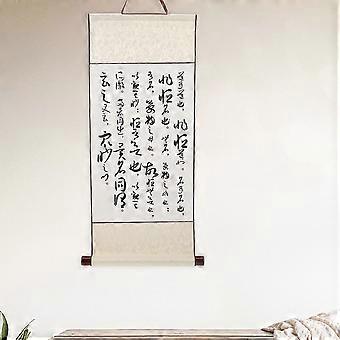 道可道也，非恒道也。名可名也，
非恒名也。无名，万物之始也；
有名，万物之母也。故恒无欲也，
以观其妙；恒有欲也，以观其
所徼。两者同出，异名同谓。
玄之又玄，众妙之门。